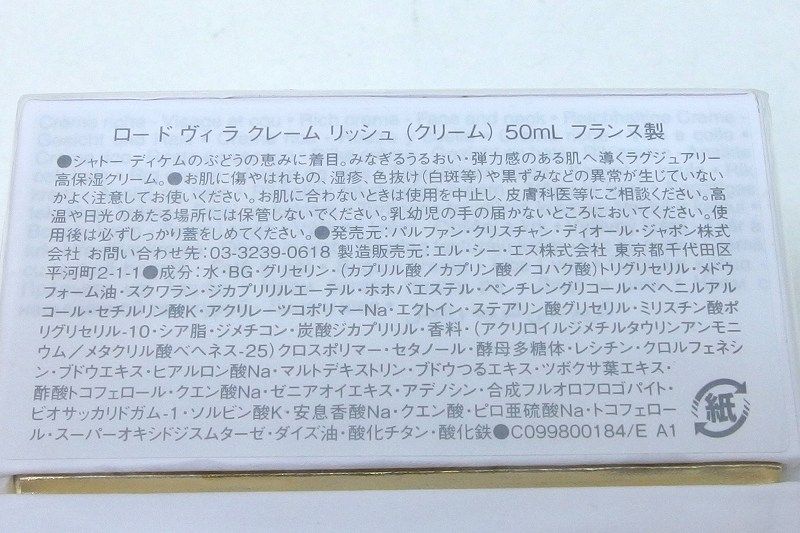 ロー ド ヴィ ラ クレーム リッシュ (クリーム) 50mL フランス製
●シャトー ディケムのぶどうの恵みに着目。みなぎるうるおい・弾力感のある肌へ導くラグジュアリー
高保湿クリーム。●お肌に傷やはれもの、湿疹、色抜け(白斑等)や黒ずみなどの異常が生じていない
かよく注意してお使いください。お肌に合わないときは使用を中止し、皮膚科医等にご相談ください。高
温や日光のあたる場所には保管しないでください。乳幼児の手の届かないところにおいてください。使
用後は必ずしっかり蓋をしめてください。●発売元:パルファン・クリスチャン・ディオール・ジャポン株式
会社 お問い合わせ先:03-3239-0618 製造販売元:エル・シー・エス株式会社 東京都千代田区
平河町2-1-1●成分:水・BG・グリセリン・(カプリル酸/カプリン酸/コハク酸)トリグリセリル・メドウ
フォーム油・スクワラン・ジカプリリルエーテル・ホホバエステル・ペンチレングリコール・ベヘニルアル
コール・セチルリン酸K・アクリレーツコポリマーNa・エクトイン・ステアリン酸グリセリル・ミリスチン酸ポ
リグリセリル-10・シア脂・ジメチコン・炭酸ジカプリリル・香料・(アクリロイルジメチルタウリンアンモニ
ウム/メタクリル酸ベヘネス-25)クロスポリマー・セタノール・酵母多糖体・レシチン・クロルフェネシ
ン・ブドウエキス・ヒアルロン酸Na・マルトデキストリン・ブドウつるエキス・ツボクサ葉エキス・
酢酸トコフェロール・クエン酸Na・ゼニアオイエキス・アデノシン・合成フルオロフロゴパイト・
ビオサッカリドガム-1・ソルビン酸K・安息香酸Na・クエン酸・ピロ亜硫酸Na・トコフェロー
ル・スーパーオキシドジスムターゼ・ダイズ油・酸化チタン・酸化鉄●C099800184/E A1
紙